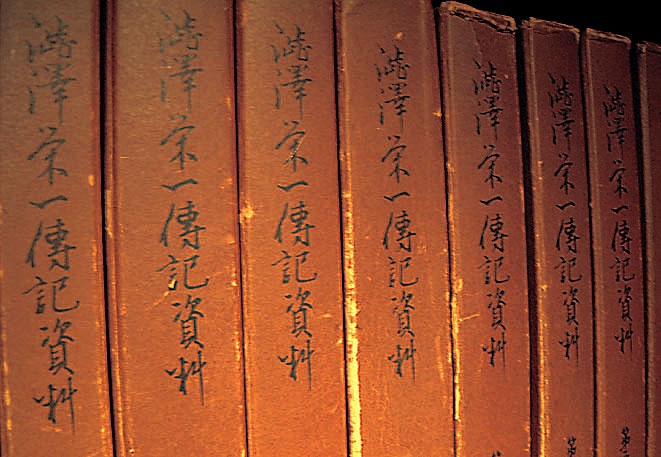 澁澤栄一傳記資料
澁澤栄一傳記資料
澁澤栄一傳記資料
澁澤栄一傳記資料
澁澤栄一傳記資料
澁澤栄一傳記資料 第
澁澤栄一傳記資料 第